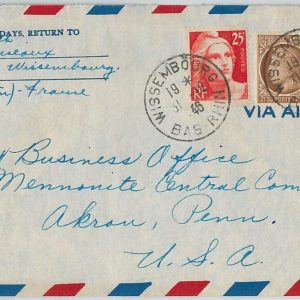 DAYS, RETURN TO
Wissembourg
France
25F
RF
WISSEMBOURG
19 *
31
48
BAS RHIN
VIA AI
Business Office
Mennonite Central Com
Akron, Penn.
U.S.A.